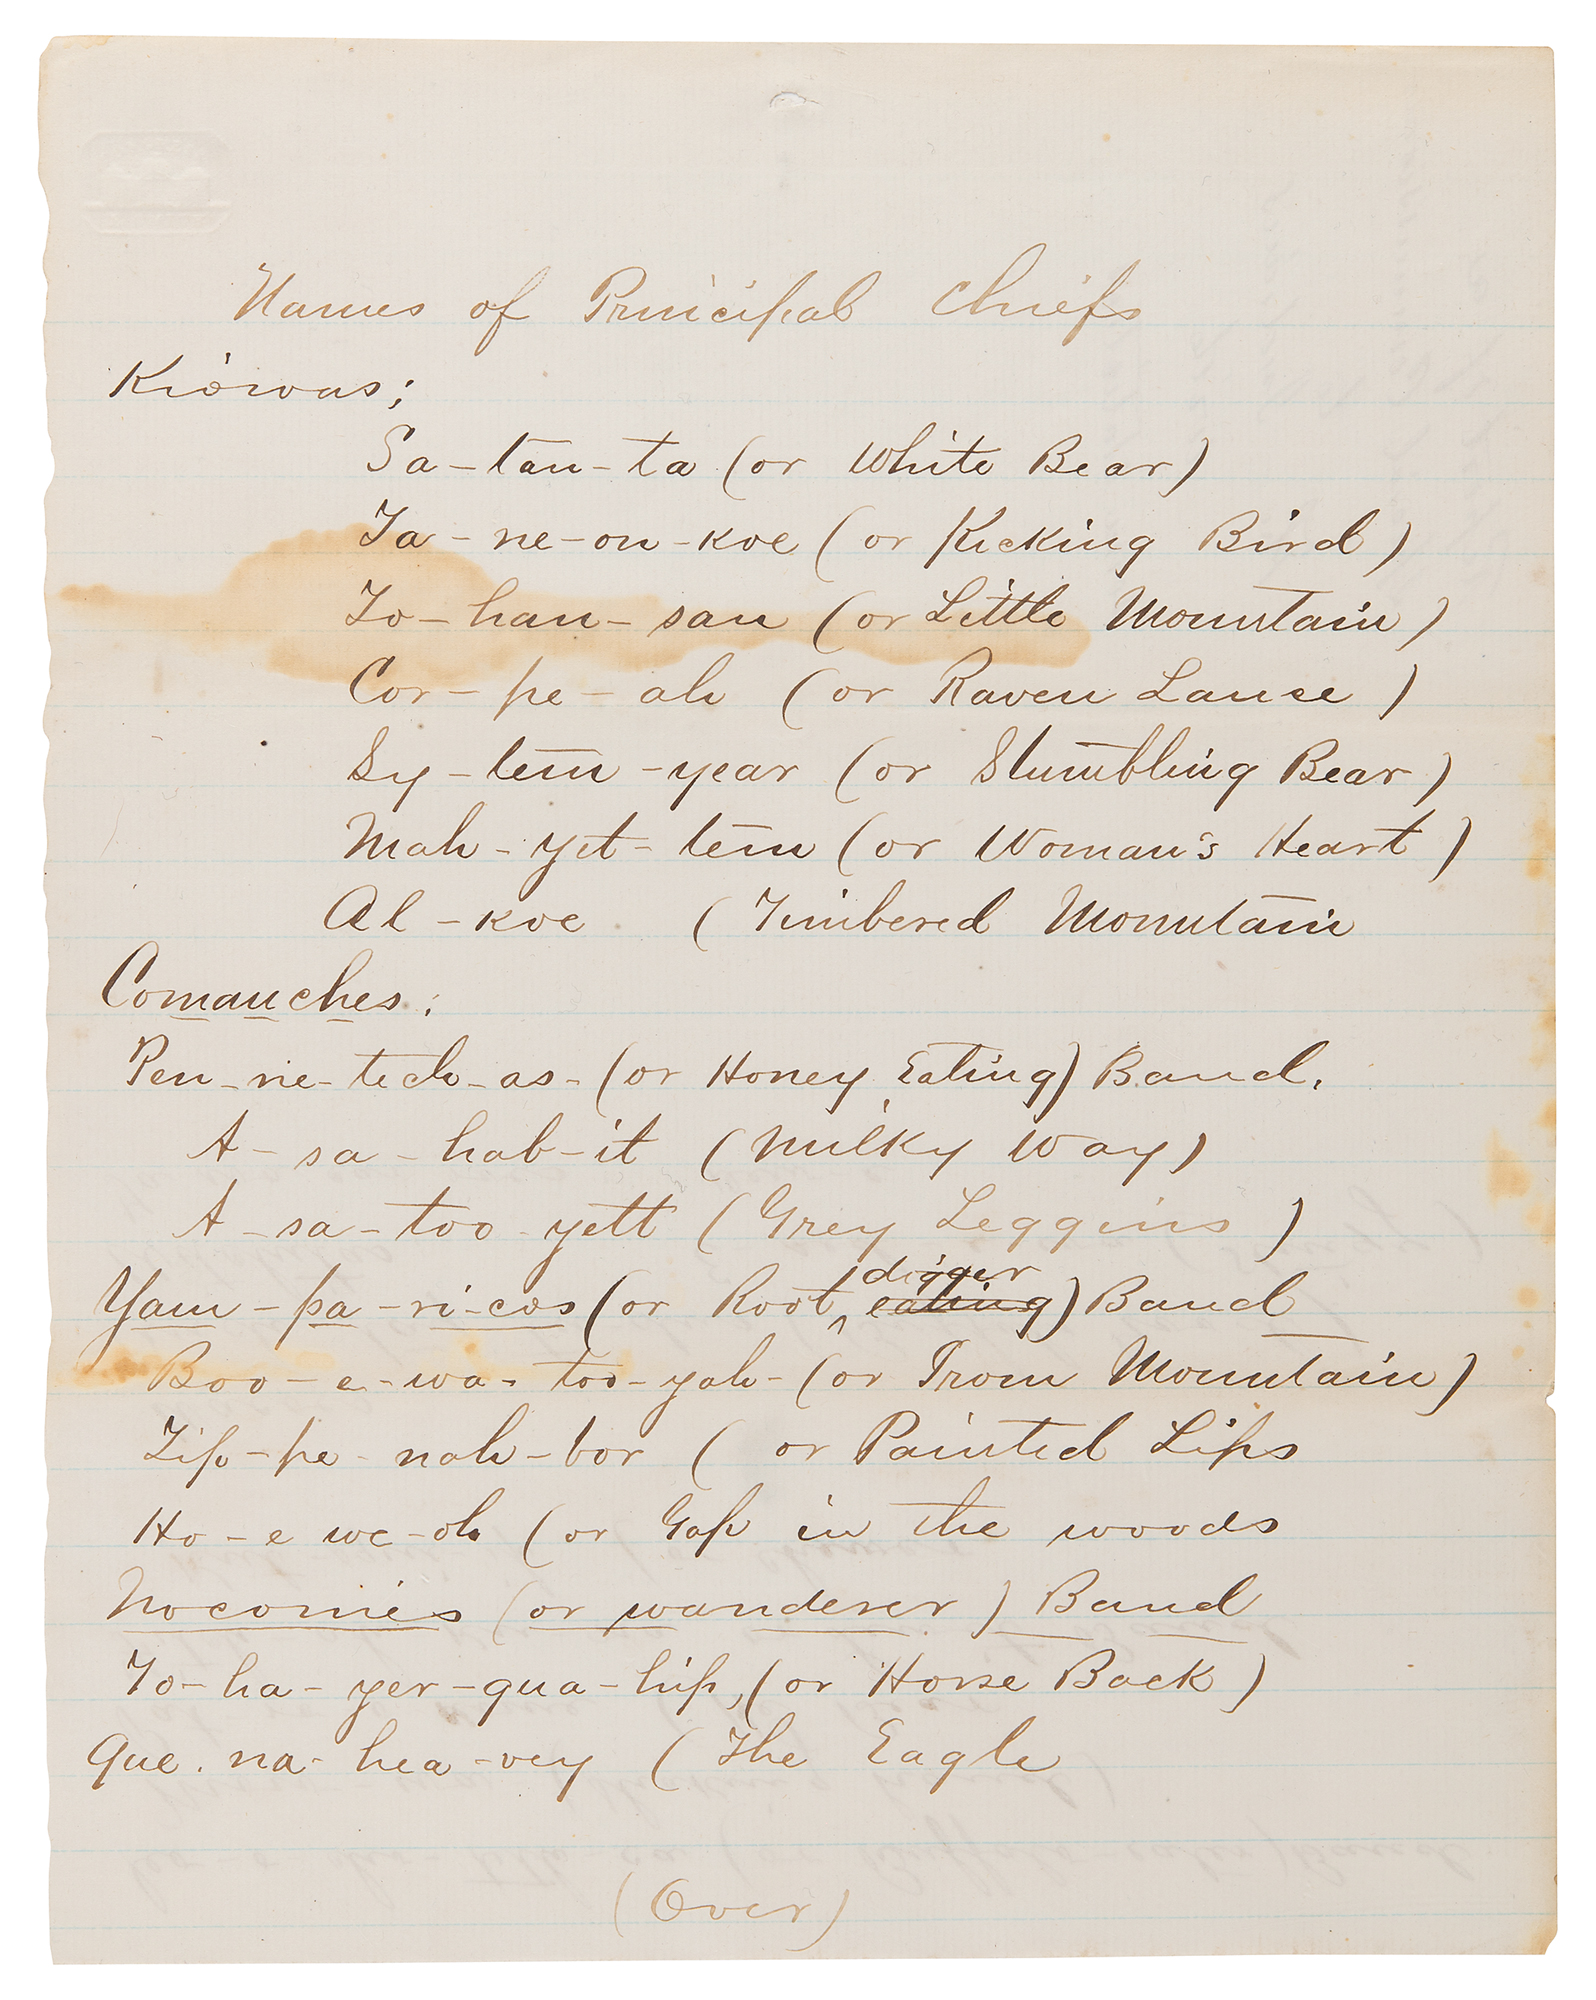 Names of Principal Chiefs
Kiowas;
Sa-tan-ta (or White Bear)
Ta-ne-on-koe (or Kicking Bird)
To-han-san (or Little Mountain)
Cor-pe-ah (or Raven Lance)
Sy-tem-year (or Stumbling Bear)
Mah-yet-tem (or Woman's Heart)
Al-koe (Timbered Mountain
Comanches:
Pen-ne-tech-as-(or Honey Eating) Band.
A-sa-hab-it (Milky Way)
A-sa-too-yett (Grey Leggins)
Yam-pa-ri-cos (or Root, digger eating) Band
Boo-e-wa-too-yah-(or Iron Mountain)
Tip-pe-nah-bor (or Painted Lips
Ho-e we-oh (or Gap in the woods
Nocomies (or wanderer) Band
To-ha-yer-qua-hip, (or Horse Back)
Que.na-hea-vey (The Eagle
(Over)